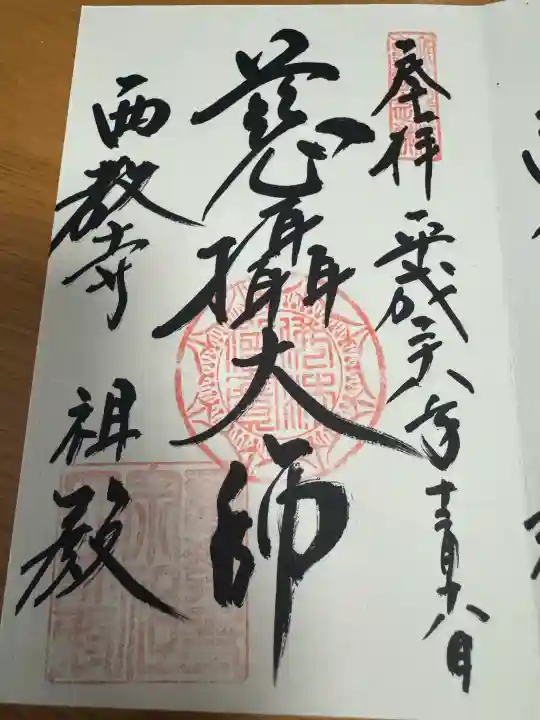 奉拝 平成二十八年十二月十八日
慈攝大師
西教寺 祖殿